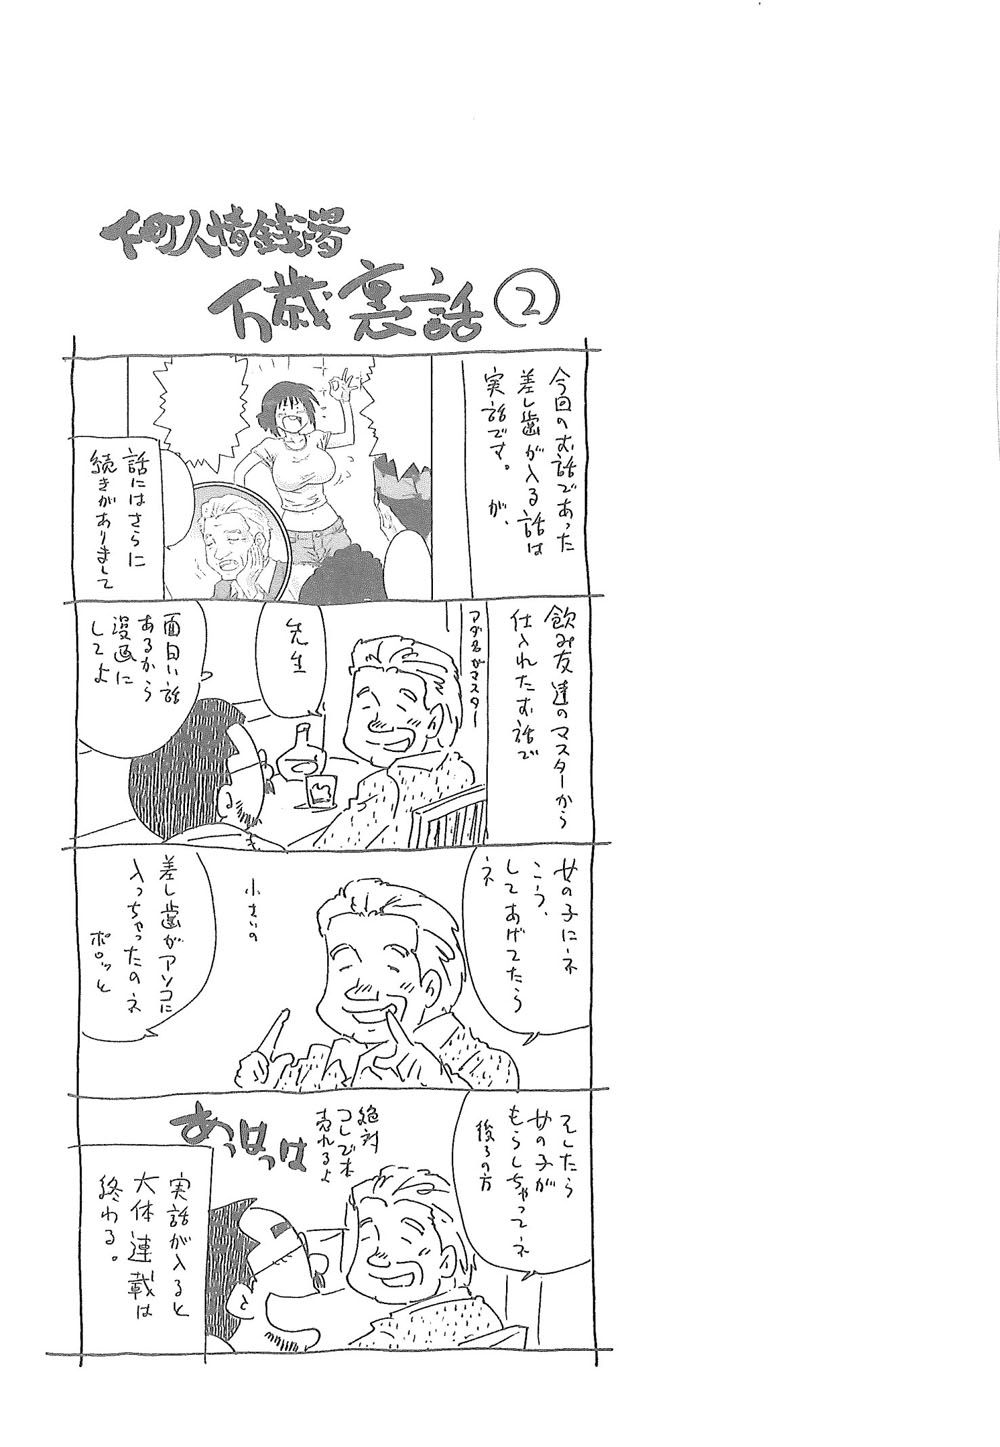 下町人情銭湯
万歳裏話②
今回のお話であった
差し歯が入る話は
実話です。が、
話にはさらに
続きがありまして
飲み友達のマスターから
仕入れたお話で
アダ名がマスター
先生
面白い話
あるから
漫画に
してよ
女の子にネ
こう、
してあげてたら
ネ
小さいの
差し歯がアソコに
入っちゃったのネ
ポロッと
そしたら
女の子が
もらしちゃってネ
後ろの方
絶対
コレで本
売れるよ
あっはっは
実話が入ると
大体連載は
終わる。